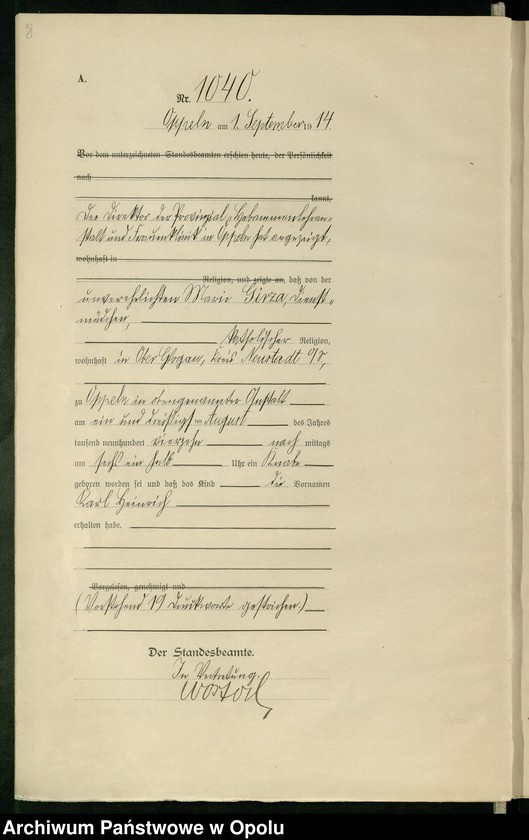 8
A.
Nr. 1040.
Oppeln am 1. September 1914
Vor dem unterzeichneten Standesbeamten erschien heute, der Persönlichkeit
nach
kannt,
Der Direktor der Provinzial-Hebammenlehran-
stalt und Frauenklinik in Oppeln hat angezeigt,
wohnhaft in
Religion, und zeigte an, daß von der
unverehelichten Marie Girza, Dienst-
mädchen,
katholischer Religion,
wohnhaft in Ober Glogau, Kreis Neustadt O/S,
zu Oppeln in obengenannter Anstalt
am ein und dreißigsten August des Jahres
tausend neunhundert vierzehn nach mittags
um sechs ein halb Uhr ein Knabe
geboren worden sei und daß das Kind die Vornamen
Karl Heinrich
erhalten habe.
Vorgelesen, genehmigt und
(Vorstehend 19 Druckworte gestrichen.)
Der Standesbeamte.
In Vertretung.
Archiwum Państwowe w Opolu